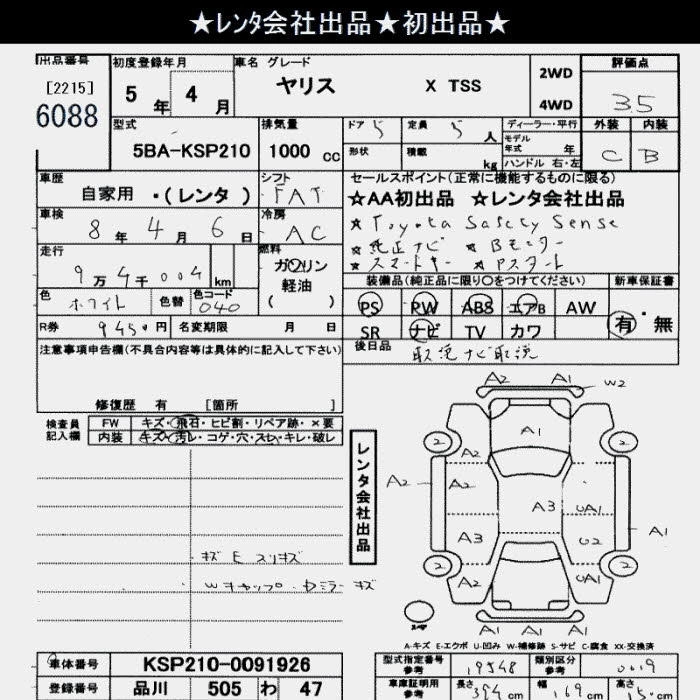 ★レンタ会社出品★初出品★
出品番号 初度登録年月 車名 グレード 評価点
[2215] 5年 4月 ヤリス X TSS 2WD 3.5
6088 4WD
型式 排気量 ドア 5 定員 5人 ディーラー・平行 外装 内装
5BA-KSP210 1000cc 形状 積載 kg モデル年式 年 C B
ハンドル 右・左
車歴 シフト セールスポイント(正常に機能するものに限る)
自家用・(レンタ) FAT ★AA初出品 ★レンタ会社出品
車検 冷房 ★Toyota Safety Sense
8年 4月 6日 AC ★純正ナビ ★Bモニター
走行 燃料 ★スマートキー ★Pスタート
9万4千004km ガソリン
軽油
( )
装備品(純正品に限り○をつけてください) 新車保証書
色 ホワイト 色替 色コード 040 PS PW ABS エアB AW 有・無
R券 9450円 名変期限 月 日 SR ナビ TV カワ
注意事項申告欄(不具合内容等は具体的に記入して下さい) 後日品 取説 ナビ取説
修復歴 有 [箇所 ]
検査員記入欄 FW キズ・飛石・ヒビ割・リペア跡・×要
内装 キズ・汚レ・コゲ・穴・スレ・キレ・破レ
レンタ会社出品
A2 A1 W2
A1
2 2
A2 A2
A3 UA1
A3 U2 A1
2 2
A2 UA1
A1 A1 A1
・キズ E スリキズ
Wキャップ・ドミラーキズ
A-キズ E-エクボ U-凹み W-補修跡 S-サビ C-腐食 XX-交換済
車体番号 KSP210-0091926 型式指定番号 参考 19548 類別区分 参考 0019
登録番号 品川 505 わ 47 車庫証明用 参考 長さ 394cm 幅 169cm 高さ cm